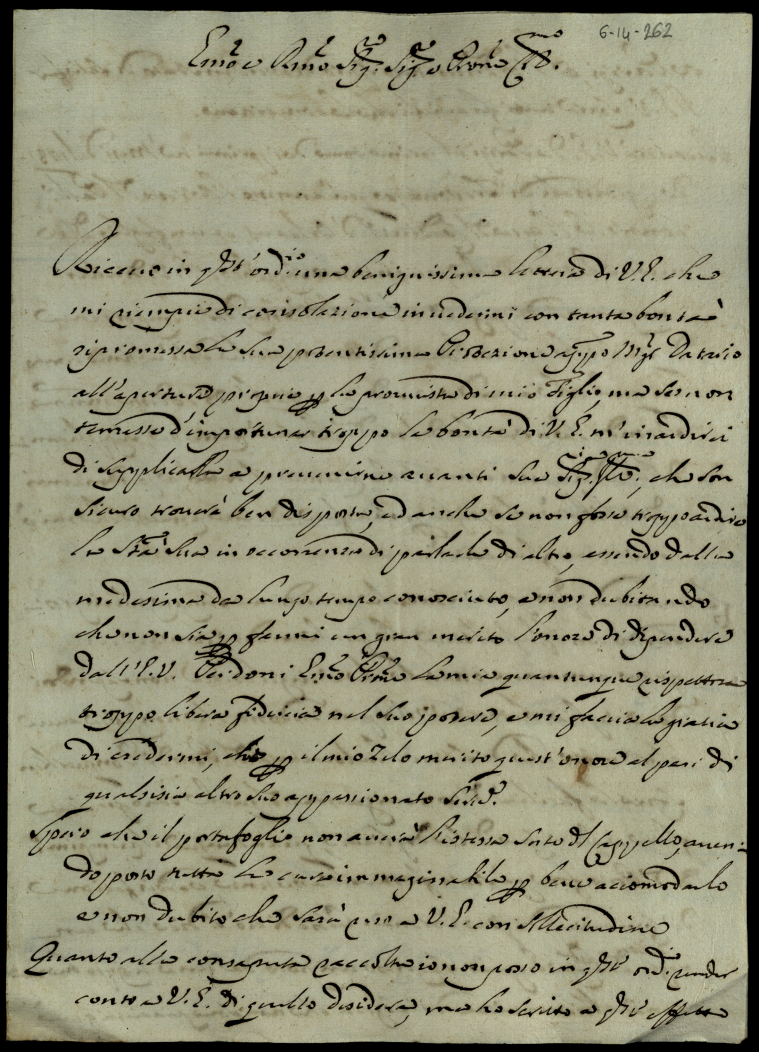 6-14-262
Em̃o e Rm̃o Sig.r Sig.r e Pron̄e Col.mo
Riceuo in q̃st' ord.rio una benignissima lettera di V. E. che
mi riempie di consolazione in uedermi con tanta bontà
ripromessa la sua potentissima Protezione appo Mg.r Datario
all'apertura propria p la prouista di mio Figlio, ma se non
temessi d'importunar troppo la bontà di V. E. m'inardirei
di supplicarla a preuenirne auanti sua , che son
sicuro trouerà ben disposta, ed anche se non fosse troppo ardire
la Stã Sua in occorrenza di parlarle di altro, essendo dalla
medessima da lungo tempo conosciuto, e non dubitando
che non sia p farmi un gran merito l'onore di dipendere
dall'E. V. Perdoni Em̃o Prñe la mia quantunque rispettosa
troppo libera fiducia nel suo potere, e mi faccia la gratia
di credermi, che p il mio Zelo merito quest'onore al pari di
qualsisia altro suo appassionato Seru.e
Spero che il portafoglio non auerà l'istessa sorte del Cappello, auen-
do posto tutta la cura immaginabile p bene accomodarlo
e non dubito che sarà reso a V. E. con sollecitudine
Quanto alla consaputa raccolta io non posso in q̃st' ord.o render
conto a V. E. di quello desidera, ma ho scritto a q̃st' effetto